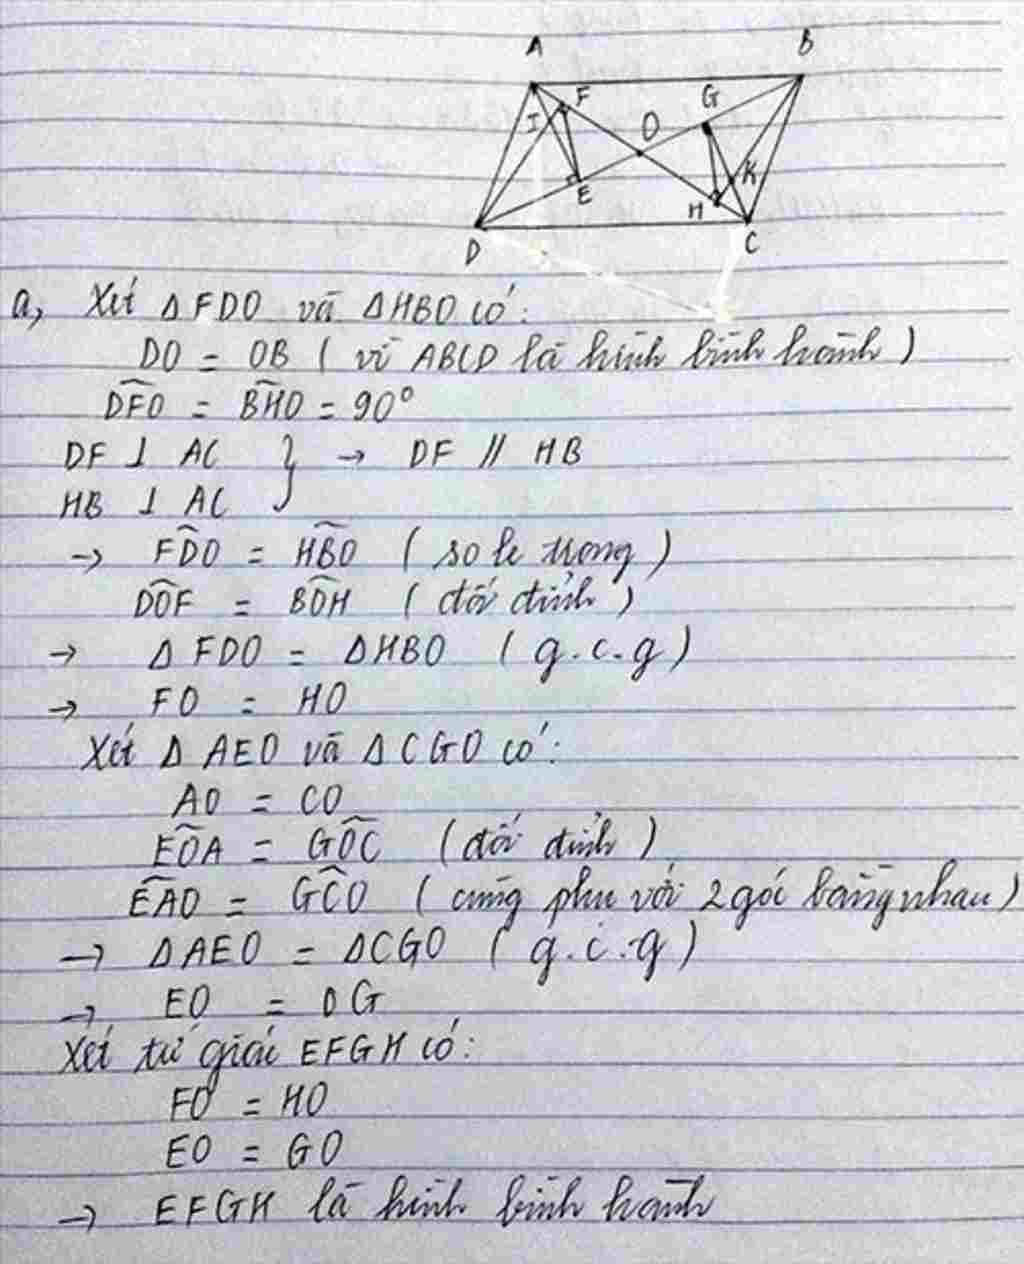 A B
F G
I O
K
E H
D C
a, Xét Δ FDO và ΔHBO có:
DO = OB ( vì ABCD là hình bình hành )
D̂FO = B̂HO = 90°
DF ⊥ AC } → DF // HB
HB ⊥ AC
→ FD̂O = HB̂O ( so le trong )
DÔF = BÔH ( đối đỉnh )
→ Δ FDO = ΔHBO ( g.c.g )
→ FO = HO
Xét Δ AEO và Δ CGO có:
AO = CO
EÔA = GÔC ( đối đỉnh )
EÂO = GĈO ( cùng phụ với 2 góc bằng nhau )
→ ΔAEO = ΔCGO ( g.c.g )
→ EO = OG
Xét tứ giác EFGH có:
FO = HO
EO = GO
→ EFGH là hình bình hành